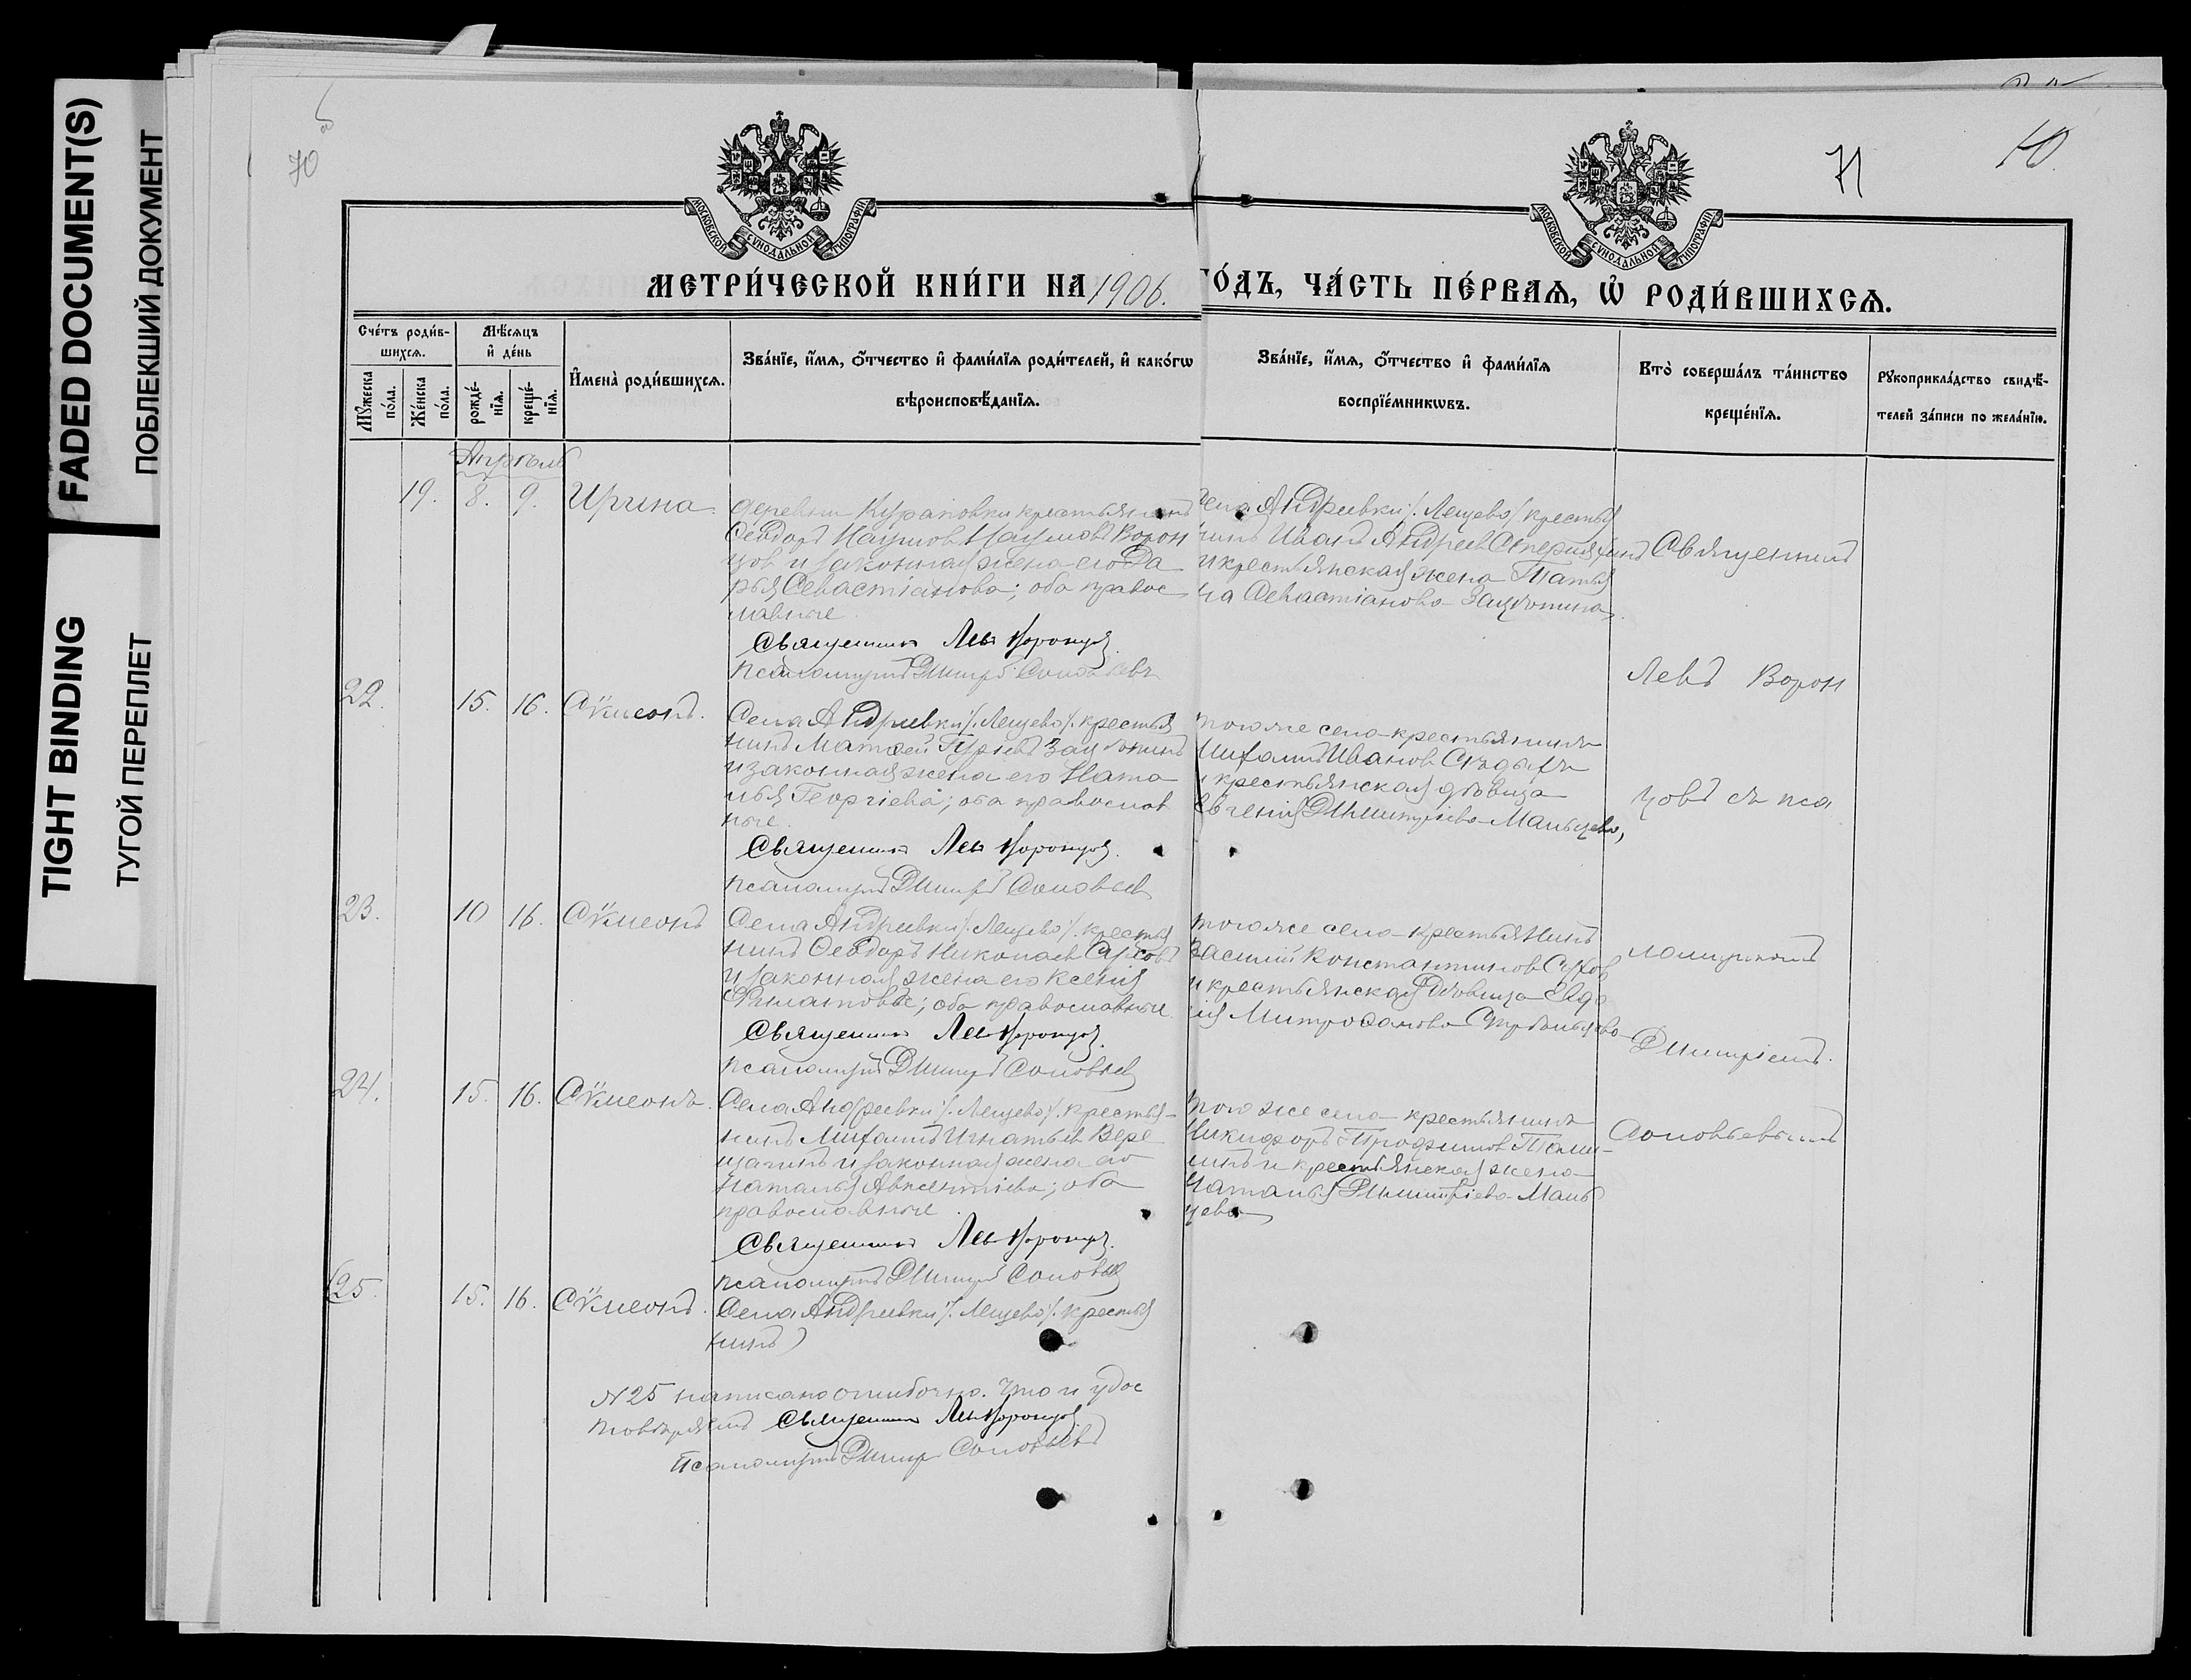 FADED DOCUMENT(S)
ПОБЛЕКШИЙ ДОКУМЕНТ
TIGHT BINDING
ТУГОЙ ПЕРЕПЛЕТ
70
71
МОСКОВСКОЙ СѴНОДАЛЬНОЙ ТИПОГРАФІИ
МОСКОВСКОЙ СѴНОДАЛЬНОЙ ТИПОГРАФІИ
МЕТРИ́ЧЕСКОЙ КНИ́ГИ НА 1906. ГО́ДЪ, ЧА́СТЬ ПЕ́РВАѦ, Ѡ҆ РОДИ́ВШИХСѦ.
Сче́тъ роди́в-
шихсѧ.
Мꙋ́жеска по́ла.
Же́нска по́ла.
Мѣ́сѧцъ
и҆ де́нь
рожде́-нїѧ.
креще́-нїѧ.
И҆мена̀ роди́вшихсѧ.
Зва́нїе, и҆́мѧ, ѻ҆́тчество и҆ фами́лїѧ роди́телей, и҆ како́гѡ
вѣроисповѣ́данїѧ.
Зва́нїе, и҆́мѧ, ѻ҆́тчество и҆ фами́лїѧ
воспрїе́мникѡвъ.
Кто̀ соверша́лъ та́инство
креще́нїѧ.
Рꙋкоприкла́дство свидѣ́-
телей за́писи по жела́нїю.
Апрѣль
19. 8. 9. Ирина.
деревни Кураповки крестьянинъ
Ѳеодоръ Наумовъ Ворон
цов и законная жена его Да
рья Севастіанова; оба правос
лавные.
Священникъ Левъ Воронцов.
Псаломщикъ Димитр. Соловьевъ
села Андреевки /. Лещево/ крестья
нинъ Иванъ Андреев
и крестьянская жена Татья
на Севастіанова
Священникъ
Левъ Ворон
22. 15. 16. Сѵмеонъ.
Села Андреевки /. Лещево/. крестья
нинъ Матѳей Гурьевъ
и законная жена его Ната
лья Георгіева; оба православ
ные.
Священникъ Левъ Воронцов.
Псаломщикъ Димитр. Соловьев
того же села крестьянинъ
Михаилъ Иванов
и крестьянская дѣвица
Евгенія Димитріева Мальцева,
цовъ съ пса
23. 10 16. Сѵмеонъ
Села Андреевки /. Лещево/. крестья
нинъ Ѳеодоръ Николаев
и законная жена его Ксенія
оба православные.
Священникъ Левъ Воронцов.
Псаломщикъ Димитр. Соловьев
того же села крестьянинъ
Василій Константинов Сухов
и крестьянская дѣвица Евдо
кія Митрофанова
ломщикомъ
Димитріемъ.
24. 15. 16. Сѵмеонъ.
Села Андреевки /. Лещево/. крестья-
нинъ Михаилъ Игнатьев Вере
щагинъ и законная жена его
Наталья Авксентіева; оба
православные.
Священникъ Левъ Воронцов.
Псаломщикъ Димитр. Соловьев
того же села крестьянинъ
Никифоръ Трофимов
и крестьянская жена
Наталья Димитріева Маль
цева
Соловьевымъ
25. 15. 16. Сѵмеонъ.
Села Андреевки /. Лещево/. крестья
нинъ)
N 25 написано ошибочно. Что и удос
товѣряемъ Священникъ Левъ Воронцов
Псаломщикъ Димитр Соловьевъ